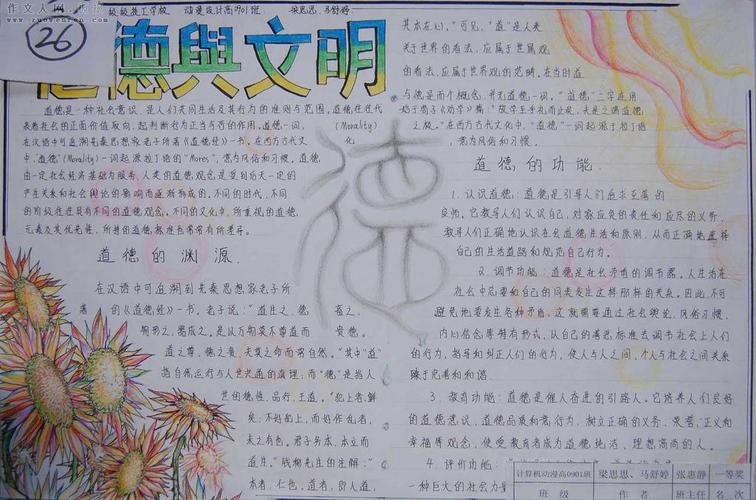 作文人网
www.zuowenren.com
级技工学校 动漫设计高0901班 梁思思、马舒婷
26
德與文明
道德是一种社会意识,是人们共同生活及其行为的准则与规范。道德往往代
表着社会的正面价值取向,起判断行为正当与否的作用。道德一词,
在汉语中可追溯到先秦思想家老子所著《道德经》一书。在西方古代文
(Morality)
化
中,“道德”(Morality)一词起源拉丁语的“Mores”,意为风俗和习惯。道德,
由一定社会经济基础为服务,人类的道德观念是受到后天一定的
产生关系和社会舆论的影响而逐渐形成的。不同的时代、不同
的阶级往往具有不同的道德观念。不同的文化中,所重视的道德,
元素及其优先性、所持的道德标准也常常有所差异。
道德的渊源
在汉语中可追溯到先秦思想家老子所
著的《道德经》一书。老子说:“道生之,德畜之,
物形之,器成之。是以万物莫不尊道而贵德。
道之尊,德之贵,夫莫之命而常自然。”其中“道”
指自然运行与人世共通的真理;而“德”是指人
世的德性、品行、王道。“犯上者,鲜
矣;不好犯上,而好作乱者,
未之有也。君子务本,本立而
道生。”钱穆先生的注解:“
本者,仁也。道者,即人道,
德
其本在心。”可见,“道”是人类
关于世界的看法,应属于世界观
的看法,应属于世界观的范畴。在当时道
与德是两个概念,并无道德一词。“道德”二字连用
始于荀子《劝学》篇:“故学至乎礼而止矣,夫是之谓道德
之极。”在西方古代文化中,“道德”一词起源于拉丁语
意为风俗和习惯。
道德的功能.
1.认识道德:道德是引导人们追求至善的
良师。它教导人们认识自己,对家应负的责任和应尽的义务,
教导人们正确地认识社会道德生活和原则,从而正确地选择
自己的生活道路和规范自己行为。
2.调节功能:道德是社会矛盾的调节器。人生活在
社会中总要和自己的同类发生这样那样的关系。因此,不可
避免地要发生各种矛盾,这就需要通过社会舆论、风俗习惯、
内心信念等特有形式,以自己的善恶标准去调节社会上人们
的行为,指导和纠正人们的行为,使人与人之间、个人与社会之间关系
臻于完善和和谐.
3.教育功能:道德是催人奋进的引路人。它培养人们良好
的道德意识、道德品质和道行为,树立正确的义务、荣誉、正义和
幸福等观念,使受教育者成为道德纯洁、理想高尚的人。
4.评价功能:
一种巨大的社会力量
计算机动漫高0901班 梁思思、马舒婷 张惠静 一等奖
班 级 姓 名 班主任 名 次